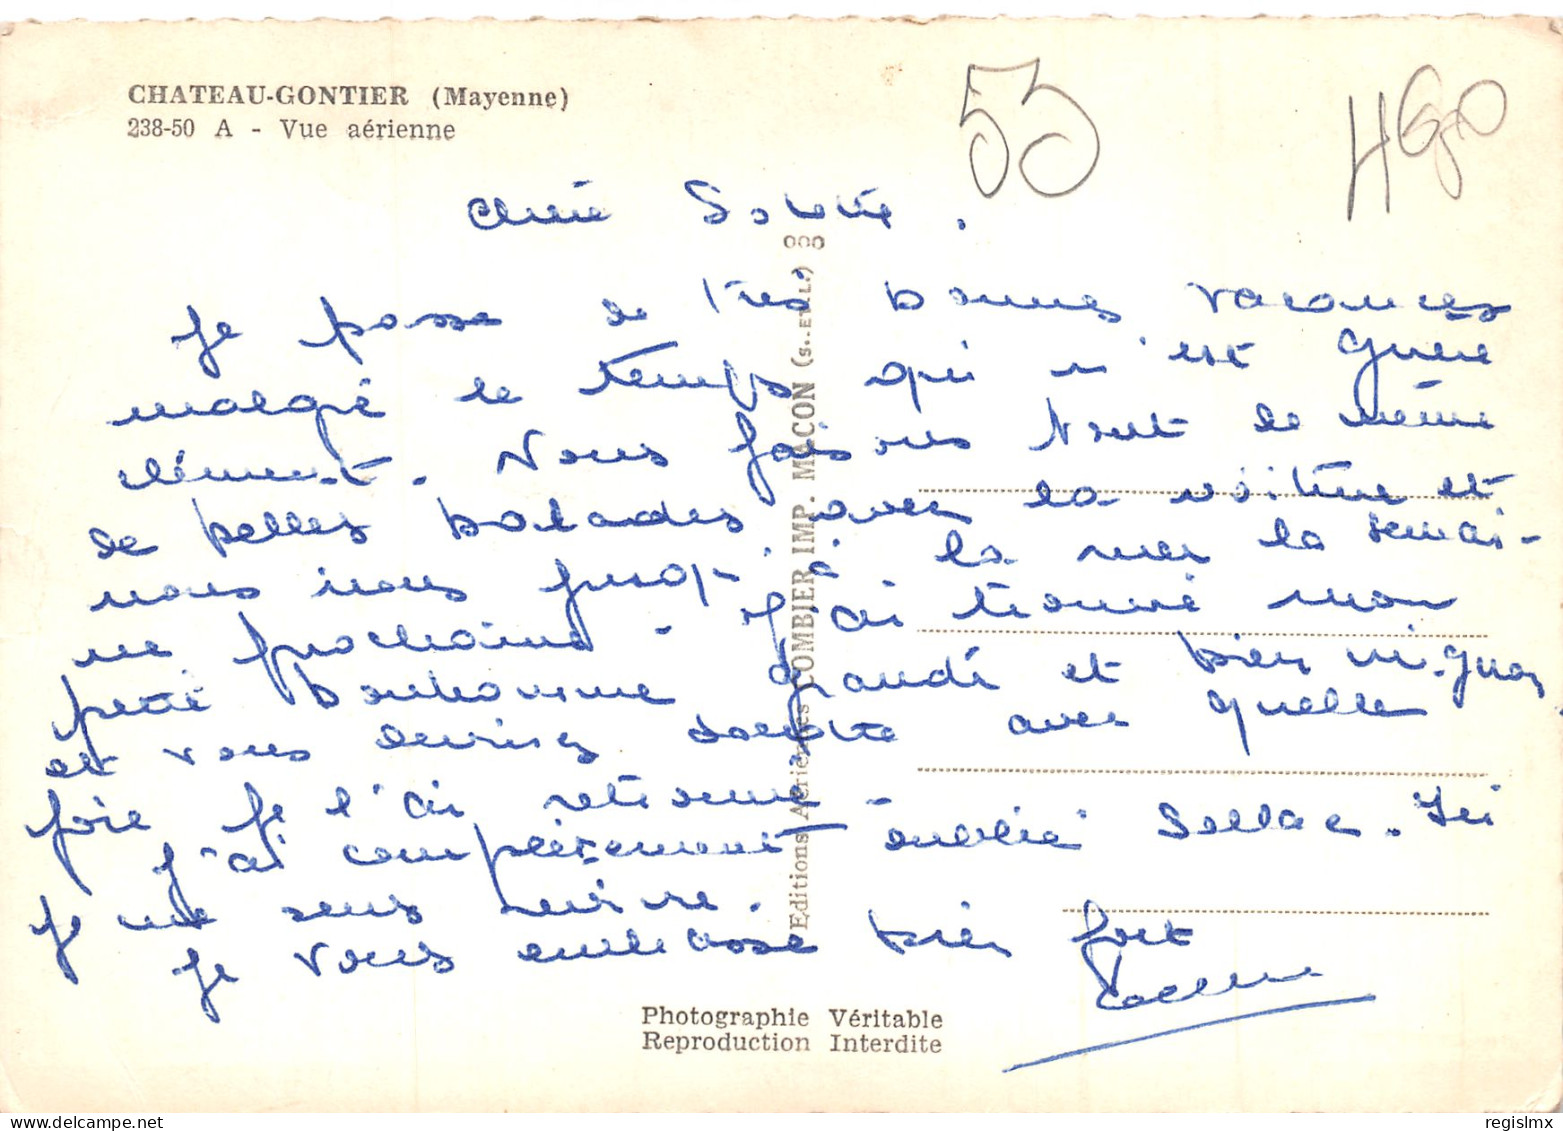 CHATEAU-GONTIER (Mayenne)
238-50 A - Vue aérienne
53
Chère
Je passe de très bonnes vacances
malgré le temps qui n'est guère
clément. Nous faisons tout de même
de belles balades avec la voiture et
nous irons jusqu'à la mer la semai-
ne prochaine. J'ai trouvé mon
petit bonhomme grandi et bien mignon
et vous devinez Solette avec quelle
joie je l'ai retrouvé
J'ai complètement oublié . Ici
je me sens revivre.
Je vous embrasse bien fort
Editions Aériennes COMBIER IMP. MACON (S.-ET-L.)
Photographie Véritable
Reproduction Interdite
regislmx